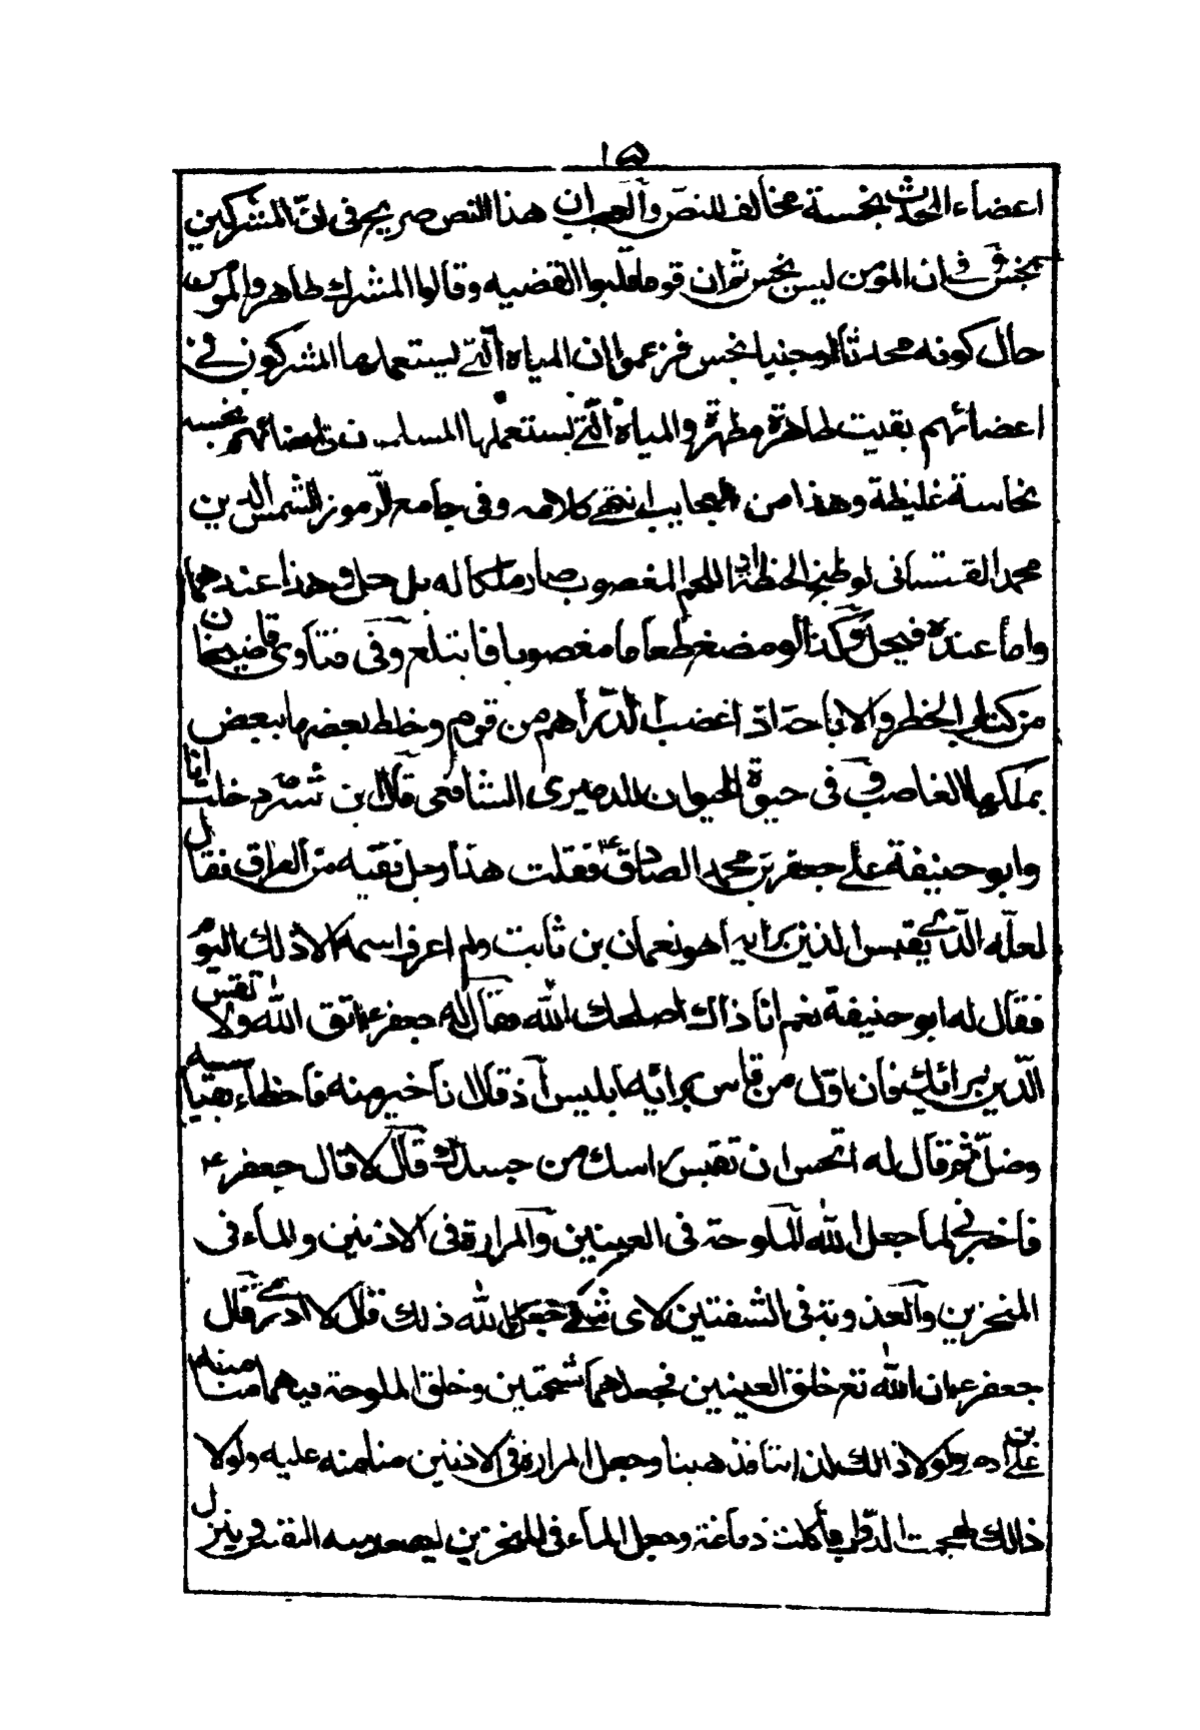 ١٥
اعضاء المحدث نجسة مخالف للنص والعجب ان هذا النص صريح فى ان المشركين
نجس و فى ان المؤمن ليس بنجس ثم ان قوما قلبوا القضيه وقالوا المشرك طاهر والمؤمن
حال كونه محدثا او جنبا نجس فزعموا ان المياه التى يستعملها المشركون فى
اعضائهم بقيت طاهرة مطهرة والمياه التى يستعملها المسلمون فى اعضائهم نجسه
نجاسة غليظة وهذا من العجايب انتهى كلامه وفى جامع الرموز لشمس الدين
محمد القهستانى لو طبخ الحنطة او اللحم المغصوب صار ملكا له بل حل وهذا عندهما
واما عنده فيحل وكذا لو مضغ طعاما مغصوبا فابتلع وفى فتاوى قاضيخان
من كتاب الحظر والاباحة اذ اغضب الدراهم من قوم وخلط بعضها ببعض
يملكها الغاصب وفى حيوة الحيوان للدميرى الشافعى قال ابن شبرمه دخلت انا
وابو حنيفة على جعفر بن محمد الصادق ع فقلت هذا رجل فقيه من العراق فقال
لعله الذى يقيس الدين برايه أهو نعمان بن ثابت ولم اعرف اسمه الا ذلك اليوم
فقال له ابو حنيفة نعم انا ذاك اصلحك الله فقال له جعفر ع اتق الله ولا تقس
الدين برائك فان اول من قاس برائه ابليس اذ قال انا خير منه فاخطاء بقياسه
وضل ثم قال له اتحسن ان تقيس راسك من جسدك قال لا قال جعفر ع
فاخبرنى لما جعل الله الملوحة فى العينين والمرارة فى الاذنين والماء فى
المنخرين والعذوبة فى الشفتين لاى شئ جعل الله ذلك قال لا ادرى قال
جعفر ع ان الله تع خلق العينين فجعلهما شحمتين وخلق الملوحة فيهما منا منه
على بن ادم ولولا ذالك لذابتا فذهبتا وجعل المرارة فى الاذنين منا منه عليه ولولا
ذالك لهجمت الدواب فأكلت دماغه وجعل الماء فى المنخرين ليصعد منه النفس وينزل